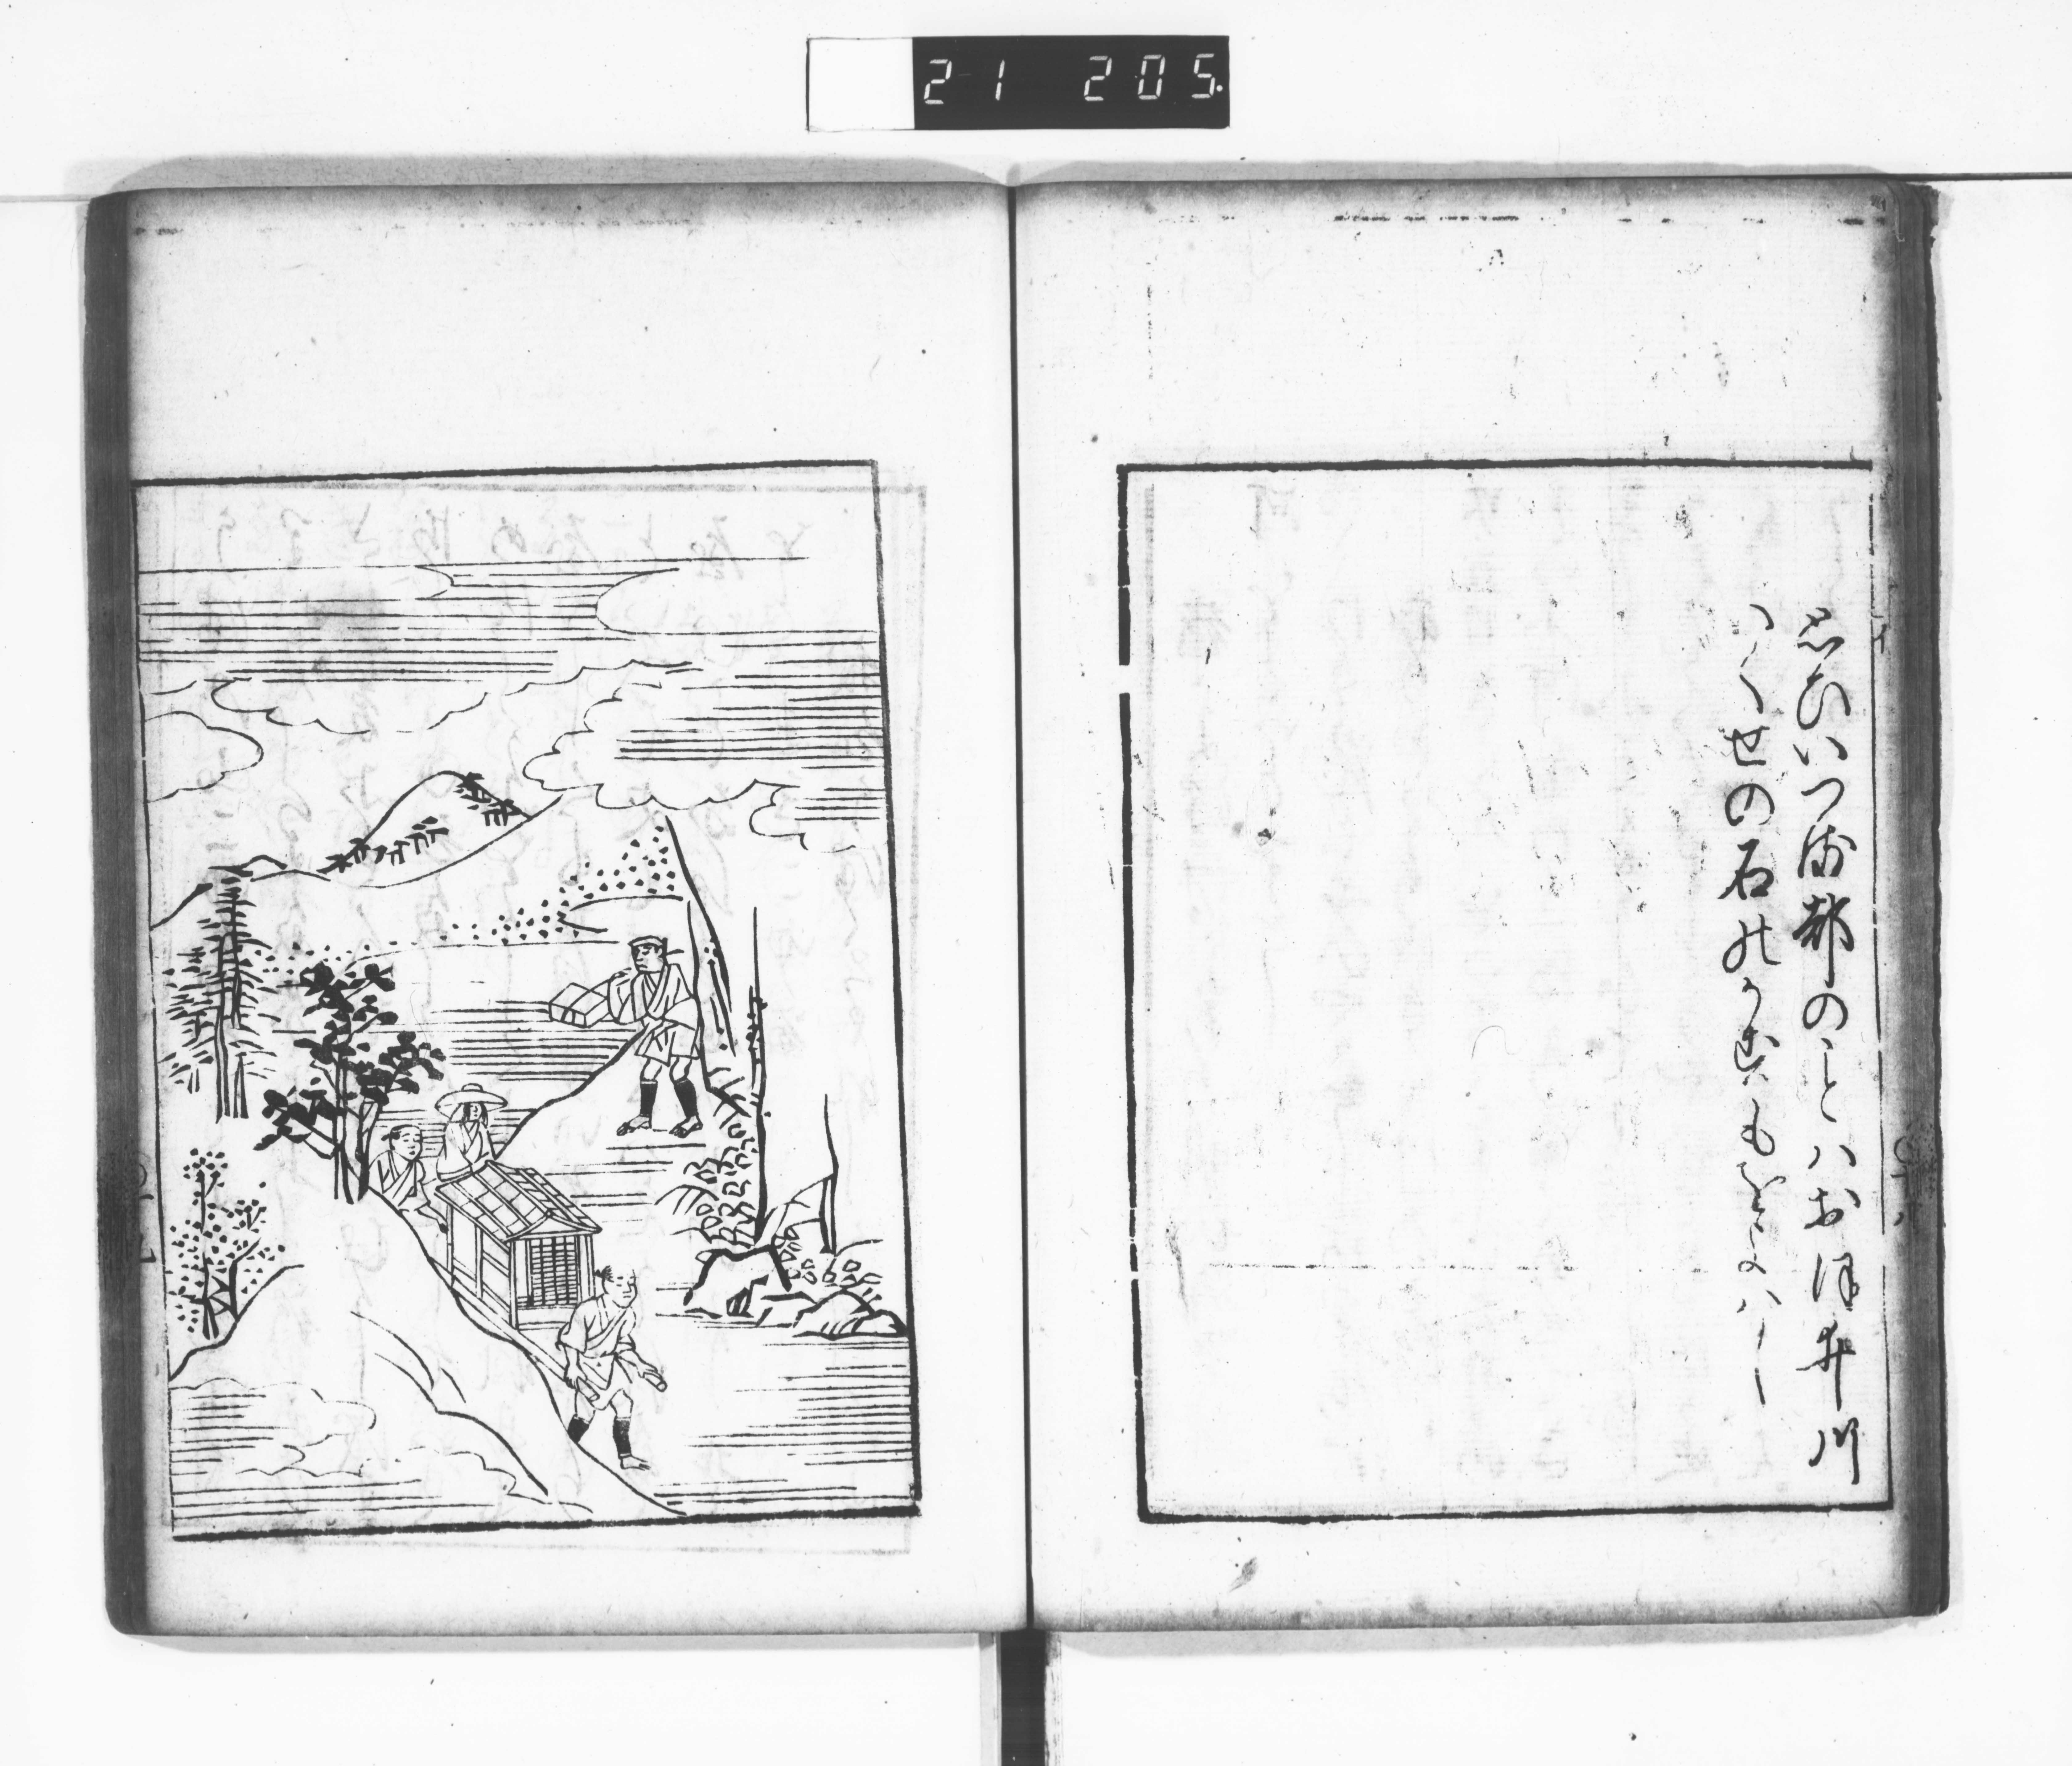 21 205.
思ひいつる都のことハおほ井川
いくせの石のかすもをよハし